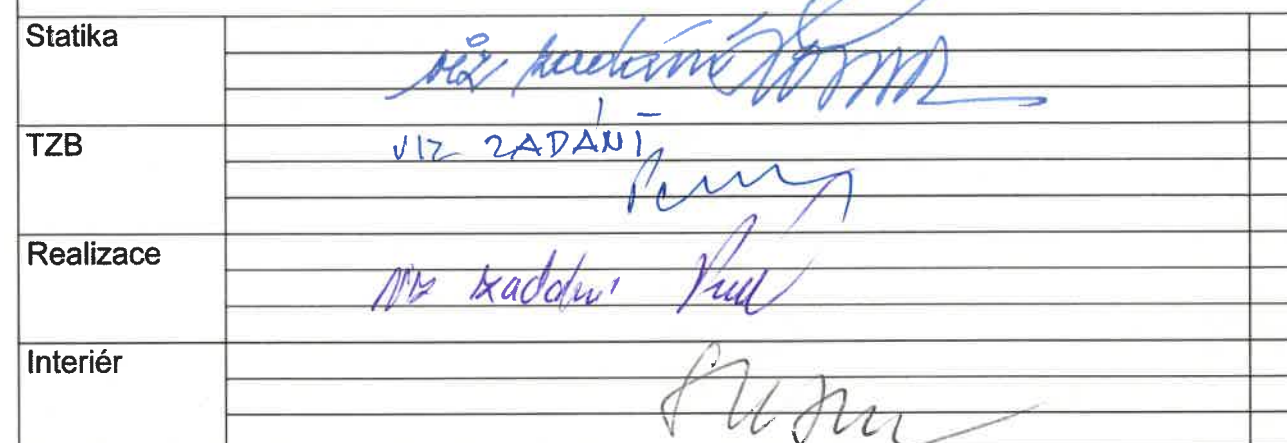 Statika
viz zadání
TZB
VIZ ZADÁNÍ
Realizace
viz zadání
Interiér